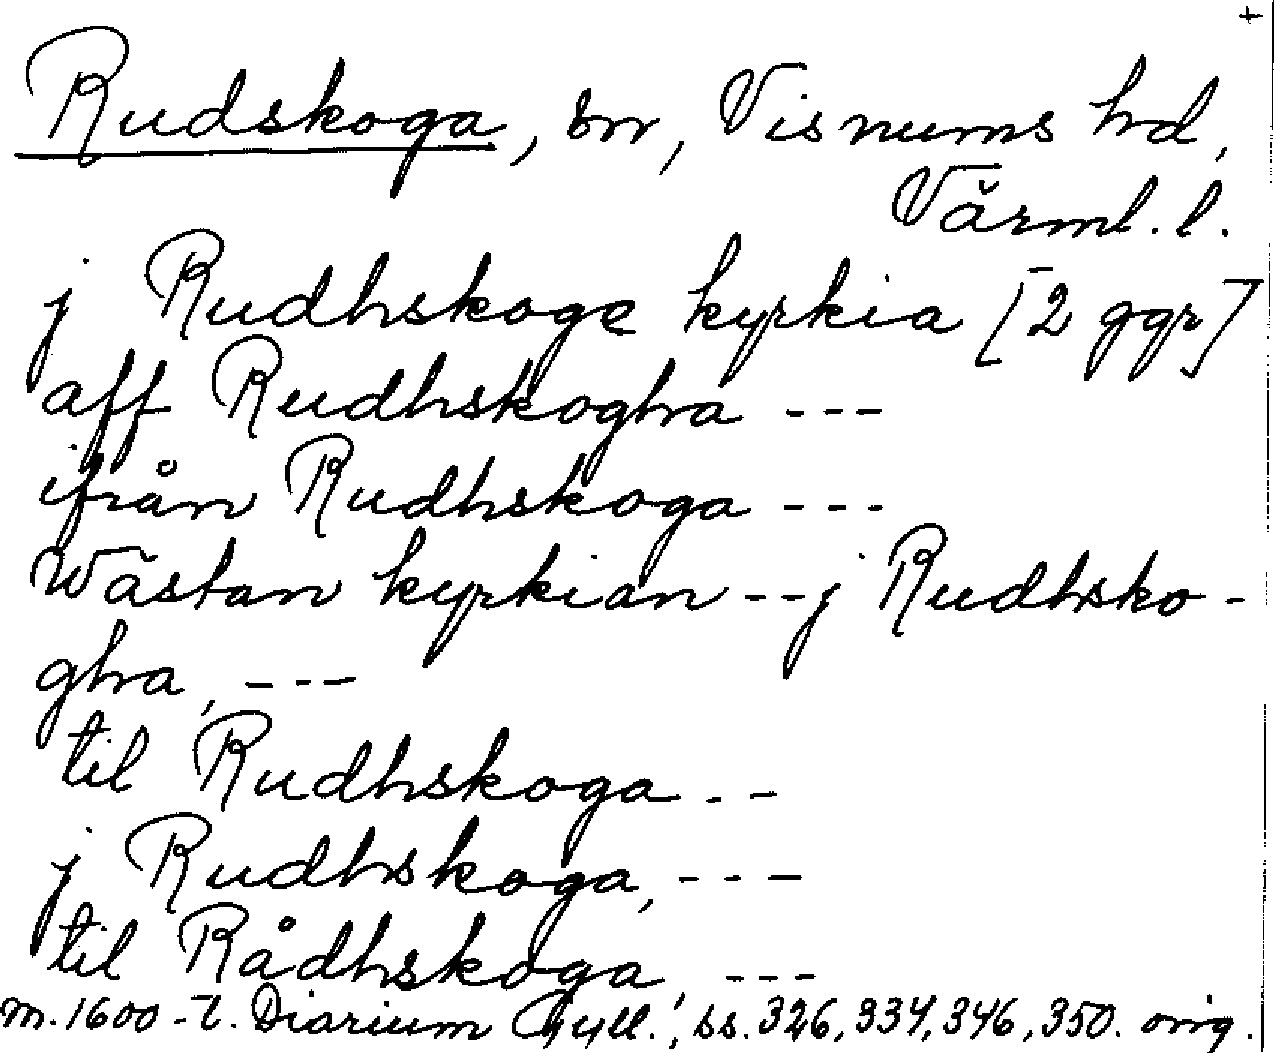 +
Rudskoga, sn, Visnums hd,
Värml. l.
j Rudhskoge kyrkia [2 ggr]
aff Rudhskogha ---
ifrån Rudhskoga ---
Wästan kyrkian -- j Rudhsko-
gha, ---
til Rudhskoga --
j Rudhskoga, ---
til Rådhskoga, ---
m. 1600-t. Diarium Gyll., ss. 326, 334, 346, 350. orig.